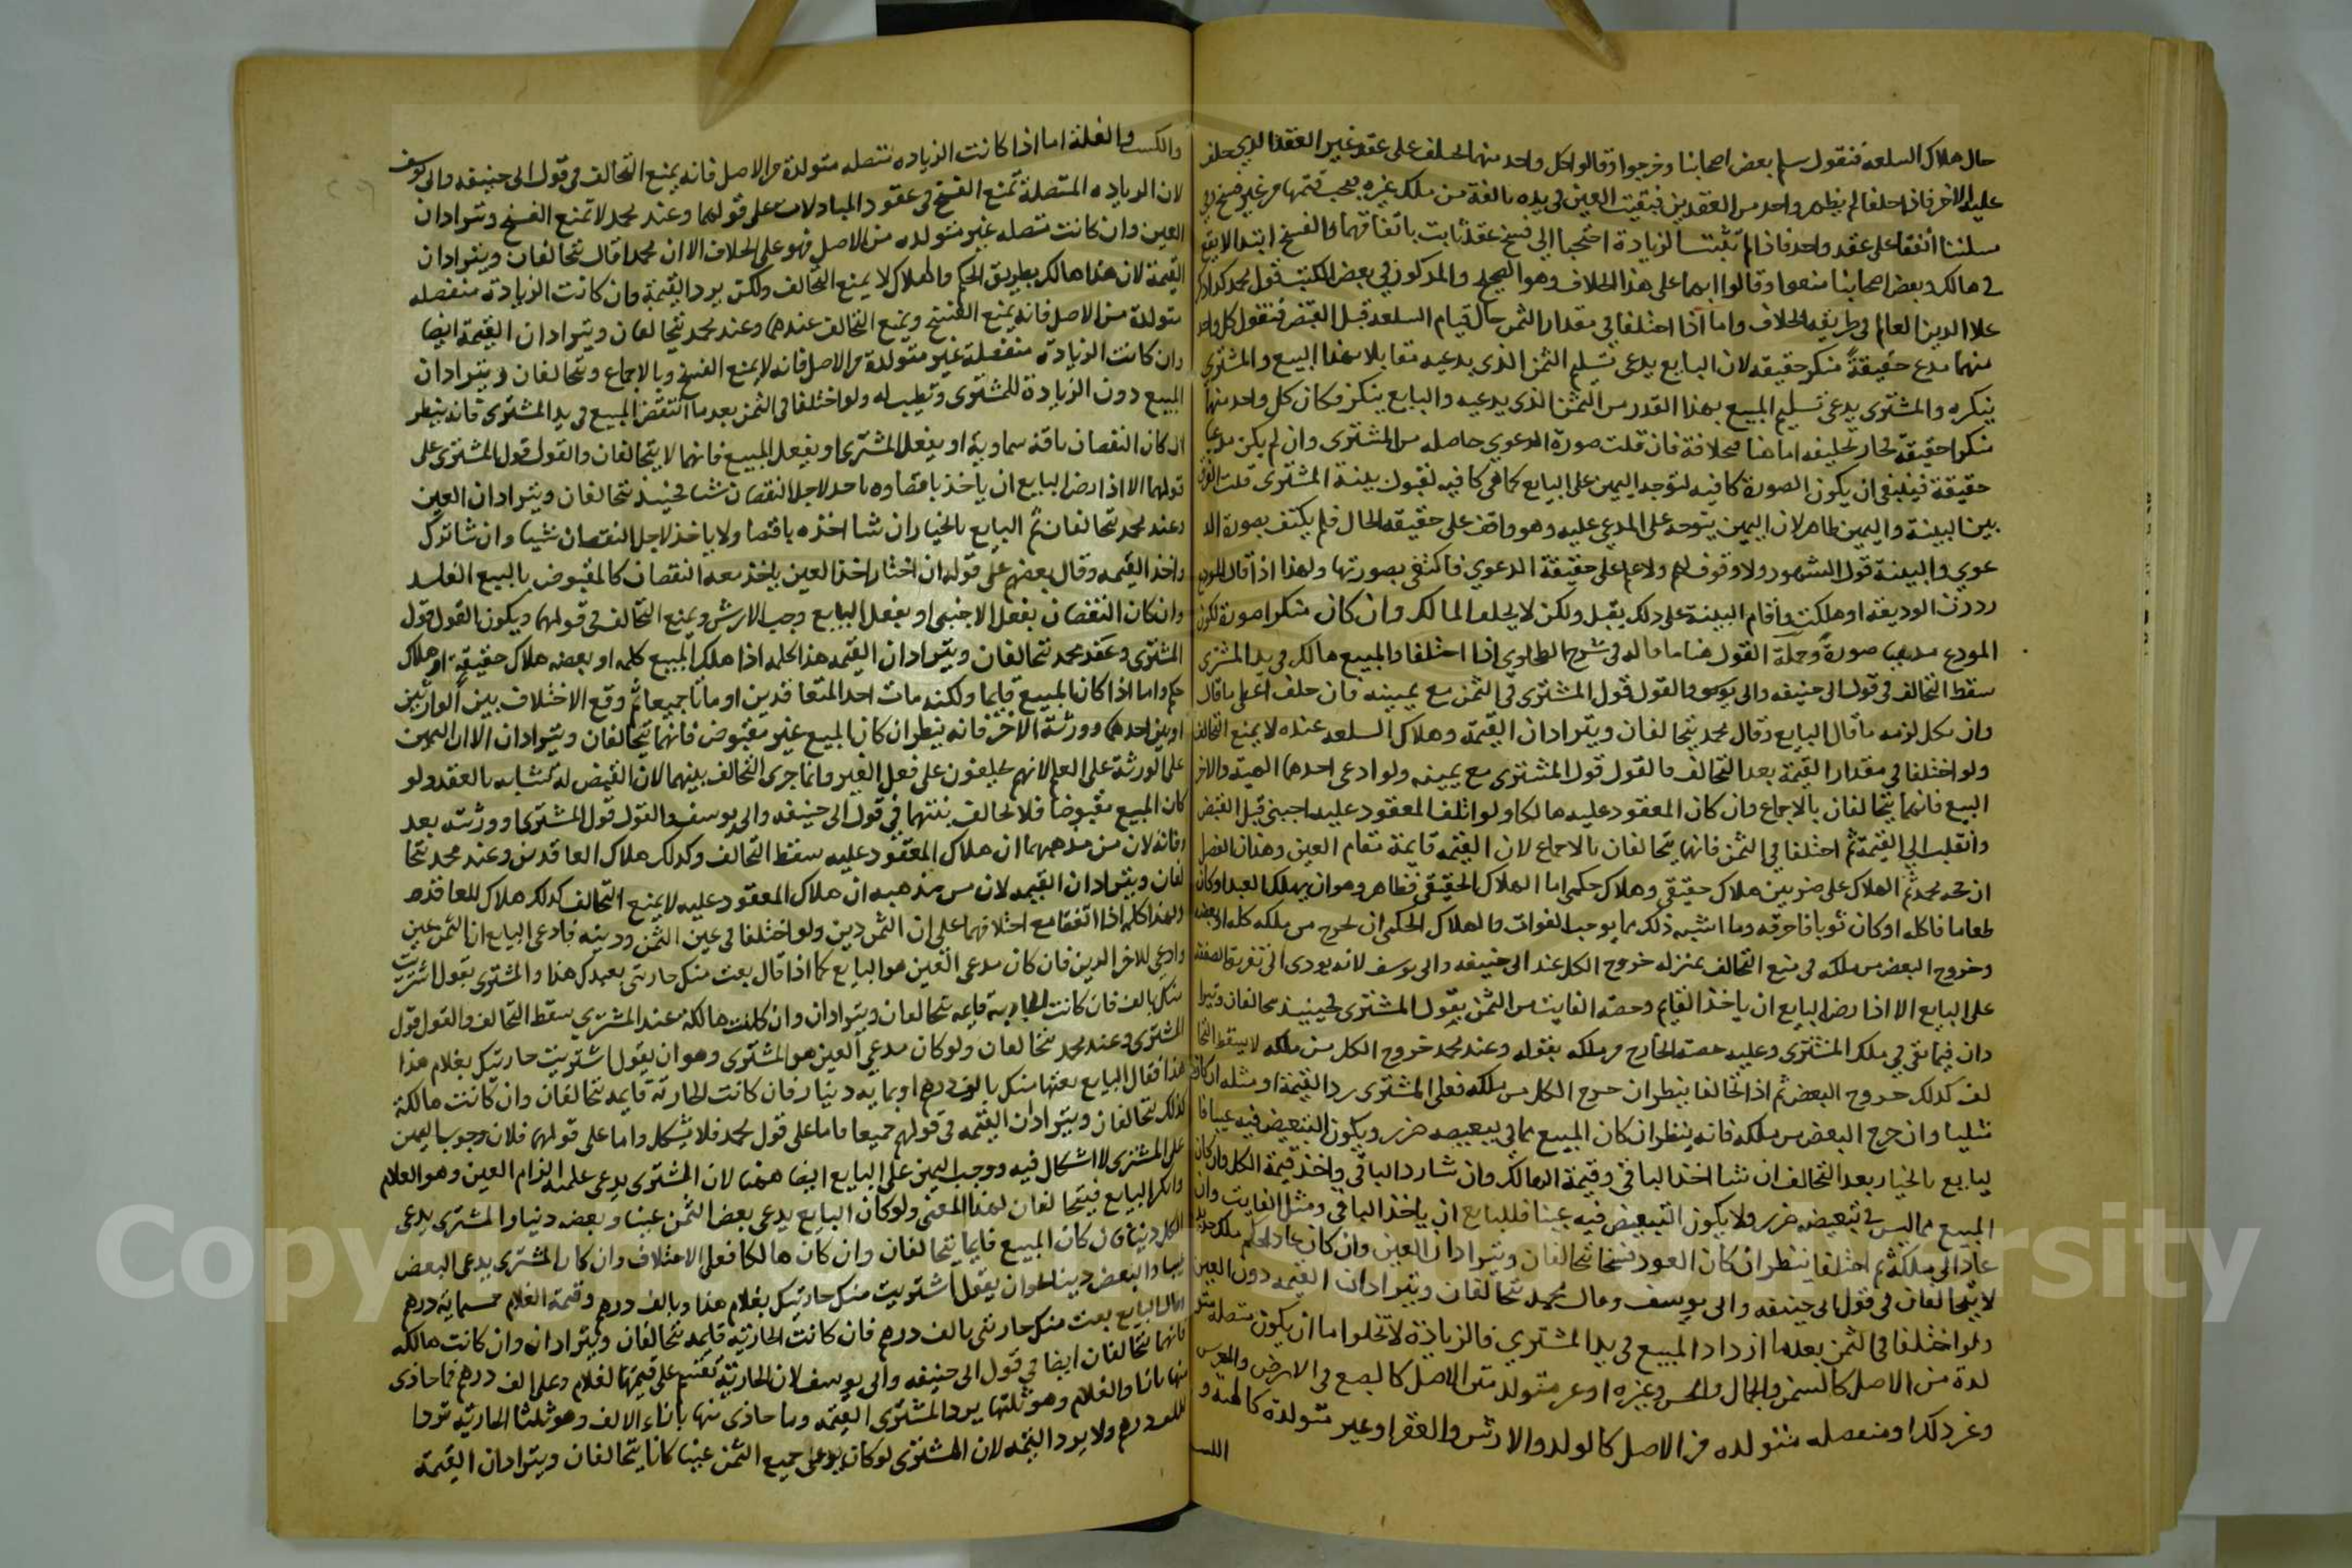 حال هلاك السلعة فنقول سلم بعض اصحابنا وخرجوا وقالوا كل واحد منهما يحلف على عقد غير العقد الذي حلف
عليه الاخر فاذا حلفا لم يظهر واحد من العقدين فبقيت العين في يده بالغة من ملك غيره فيجب قيمتها من غير فسخ
سلمنا اتفقا على عقد واحد فاذا لم تثبت الزيادة احتجبا الى فسخ عقد ثابت باتفاقهما والفسخ ابتدا لا يقع
في هالك وبعض اصحابنا منعوا وقالوا ايهما على هذا الخلاف وهو الصحيح والمذكور في بعض الكتب قول محمد
علا الدين العالم في طريقة الخلاف واما اذا اختلفا في مقدار الثمن حال قيام السلعة قبل القبض فنقول كل واحد
منهما مدع حقيقةً منكر حقيقه لان البايع يدعى تسليم الثمن الذى يدعيه مقابلا بهذا البيع والمشترى
ينكره والمشترى يدعى تسليم المبيع بهذا القدر من الثمن الذى يدعيه والبايع ينكر فكان كل واحد منهما
منكرا حقيقة فجاز تحليفه اما هنا فخلافة فان قلت صورة الدعوي حاصله من المشترى وان لم يكن مدعيا
حقيقة فينبغى ان يكون الصورة كافيه لتوجه اليمين على البايع كما هى كافيه لقبول بينة المشترى قلت الفرق
بين البينة واليمين ظاهر لان اليمين يتوجه على المدعى عليه وهو واقف على حقيقه الحال فلم يكتف بصورة الد
عوي والبينة قول الشهود ولا وقوف لهم ولا علم على حقيقة الدعوي فاكتفى بصورتها ولهذا اذا قال المودع
رددت الوديعة او هلكت واقام البينة على ذلك يقبل ولكن لا يحلف المالك وان كان منكرا صورة لكون
المودع مدعيا صورةً وجملة القول هنا ما قاله في شرح الطحاوي اذا اختلفا والمبيع هالك في يد المشترى
سقط التحالف في قول ابى حنيفه وابى يوسف والقول قول المشترى في الثمن مع يمينه فان حلف اعطى ما قال
وان نكل لزمه ما قال البايع وقال محمد يتحالفان ويترادان القيمة وهلاك السلعه عنده لا يمنع التحالف
ولو اختلفا في مقدار القيمة بعد التحالف فالقول قول المشترى مع يمينه ولو ادعى احدهما الهبة والاخر
البيع فانهما يتحالفان بالاجماع وان كان المعقود عليه هالكا ولو اتلف المعقود عليه اجنبى قبل القبض
وانقلب الي القيمة ثم اختلفا في الثمن فانهما يتحالفان بالاجماع لان القيمه قايمة مقام العين وهذا الفصل
ان حجه محمد ثم الهلاك على ضربين هلاك حقيقى وهلاك حكمى اما الهلاك الحقيقى فظاهر وهو ان يهلك العبد او كان
طعاما فاكله او كان ثوبا فاحرقه وما اشبه ذلك مما يوجب الفوات والهلاك الحكمى ان يخرج من ملكه كله او بعضه
وخروج البعض من ملكه في منع التحالف بمنزله خروج الكل عند ابى حنيفه وابى يوسف لانه يودى الى تفريق الصفقه
على البايع الا اذا رضى البايع ان ياخذ القايم وحصة الفايت من الثمن بقول المشترى فحينيذ يتحالفان ويترا
دان فيما بقى في ملك المشترى وعليه حصه الخارج من ملكه بقوله وعند محمد خروج الكل من ملكه لا يسقط التحا
لف كذلك خروج البعض ثم اذا تحالفا ينظر ان خرج الكل من ملكه فعلى المشترى رد القيمة او مثله ان كان
مثليا وان خرج البعض من ملكه فانه ينظر ان كان المبيع مما في تبعيضه ضرر ويكون التبعيض فيه عيبا فا
لبايع بالخيار بعد التحالف ان شا اخذ الباقى وقيمة الهالك وان شا رد الباقي واخذ قيمة الكل وان كان
المبيع مما ليس في تبعيضه ضرر ولا يكون التبعيض فيه عيبا فللبايع ان ياخذ الباقي ومثل الفايت وان
عاد الى ملكه ثم اختلفا ينظر ان كان العود فسخا يتحالفان ويترادان العين وان كان عاد بحكم ملك جديد
لا يتحالفان في قول ابى حنيفه وابى يوسف وقال محمد يتحالفان ويترادان القيمه دون العين
ولو اختلفا في الثمن بعد ما ازداد المبيع في يد المشتري فالزيادة لا تخلوا ما ان يكون متصله متو
لدة من الاصل كالسمن والجمال والحسن وغيره او غير متولد من الاصل كالصبغ في الارض والغرس
وغير ذلك او منفصله متولده من الاصل كالولد والارش والعقر او غير متولدة كالهبه و
والكسب والغلة اما اذا كانت الزياده متصله متولدة من الاصل فانه يمنع التحالف في قول ابى حنيفه وابى يوسف
لان الزياده المتصلة تمنع الفسخ في عقود المبادلات على قولهما وعند محمد لا تمنع الفسخ ويترادان
العين وان كانت متصله غير متولده من الاصل فهو على الخلاف الا ان محمدا قال يتحالفان ويترادان
القيمة لان هذا هالك بطريق الحكم والهلاك لا يمنع التحالف ولكن يرد القيمة وان كانت الزيادة منفصله
متولدة من الاصل فانه يمنع الفسخ ويمنع التحالف عندهما وعند محمد يتحالفان ويترادان القيمة ايضا
وان كانت الزيادة منفصلة غير متولدة من الاصل فانه لا يمنع الفسخ وبالاجماع وتتحالفان ويترادان
المبيع دون الزيادة للمشترى وتطيب له ولو اختلفا في الثمن بعد ما انتقض المبيع في يد المشترى فانه ينظر
ان كان النقصان بافة سماوية او بفعل المشترى او بفعل المبيع فانهما لا يتحالفان والقول قول المشترى على
قولهما الا اذا رضى البايع ان ياخذ ناقصا ولا ياخذ لاجل النقصان شيا فحينيذ يتحالفان ويترادان العين
وعند محمد يتحالفان ثم البايع بالخيار ان شا اخذه ناقصا ولا ياخذ لاجل النقصان شيا وان شا ترك
واخذ القيمه وقال بعضهم على قوله ان اختار اخذ العين ياخذ معه النقصان كالمقبوض بالبيع الفاسد
وان كان النقصان بفعل الاجنبى او بفعل البايع وجب الارش ويمنع التحالف في قولهما ويكون القول قول
المشترى وعند محمد يتحالفان ويترادان القيمه هذا كله اذا هلك المبيع كله او بعضه هلاك حقيقة او هلاك
حكم واما اذا كان المبيع قايما ولكنه مات احد المتعاقدين او ماتا جميعا ثم وقع الاختلاف بين الوارثين
او بين احدهما وورثة الاخر فانه ينظر ان كان المبيع غير مقبوض فانهما يتحالفان ويترادان الا ان اليمين
على الورثة على العلم لانهم يحلفون على فعل الغير وانما جرى التحالف بينهما لان القبض له مشابه بالعقد ولو
كان المبيع مقبوضا فلا تحالف بينهما في قول ابى حنيفه وابى يوسف والقول قول المشترى او ورثته بعد
وفاته لان من مذهبهما ان هلاك المعقود عليه سقط التحالف وكذلك هلاك العاقدين وعند محمد يتحا
لفان ويترادان القيمه لان من مذهبه ان هلاك المعقود عليه لا يمنع التحالف كذلك هلاك للعاقده
ولهذا كله اذا اتفقا مع اختلافهما على ان الثمن دين ولو اختلفا في عين الثمن ودينه فادعى البايع ان الثمن عين
وادعى للاخر الدين فان كان مدعى العين هو البايع كما اذا قال بعت منك جاريتى بعبدك هذا والمشترى يقول اشتريت
منك بالف فان كانت الجارية قايمه يتحالفان ويترادان وان كانت هالكة عند المشترى سقط التحالف والقول قول
المشترى وعند محمد يتحالفان ولو كان مدعى العين هو المشترى وهو ان يقول اشتريت جاريتك بغلام هذا
هذا فقال البايع بعتها منك بالف درهم او بمايه دينار فان كانت الجارية قايمه يتحالفان وان كانت هالكة
كذلك يتحالفان ويترادان القيمه في قولهم جميعا فاما على قول محمد فلا يشكل واما على قولهما فلان وجوب اليمين
على المشترى لا اشكال فيه ووجب اليمين على البايع ايضا ههنا لان المشترى يدعى عليه الزام العين وهو الغلام
وانكر البايع فيتحالفان لهذا المعنى ولو كان البايع يدعى بعض الثمن عينا وبعضه دينا والمشترى يدعى
الكل دينا فان كان المبيع قايما يتحالفان وان كان هالكا فعلى الاختلاف وان كان المشترى يدعى البعض
عينا والبعض دينا هو ان يقول اشتريت منك جاريتك بغلام هذا وبالف درهم وقيمة الغلام خمسمايه درهم
وقال البايع بعت منك جاريتى بالف درهم فان كانت الجاريه قايمه يتحالفان ويترادان وان كانت هالكه
فانهما يتحالفان ايضا في قول ابى حنيفه وابى يوسف لان الجاريه تقسم على قيمة الغلام وعلى الف درهم فما حاذى
منها بازا الغلام وهو ثلثها يرد المشترى القيمه وما حاذى منها بازاء الالف وهو ثلثا الجاريه يرد
الف درهم ولا يرد القيمه لان المشترى لو كان يدعى جميع الثمن عينا كانا يتحالفان ويترادان القيمة